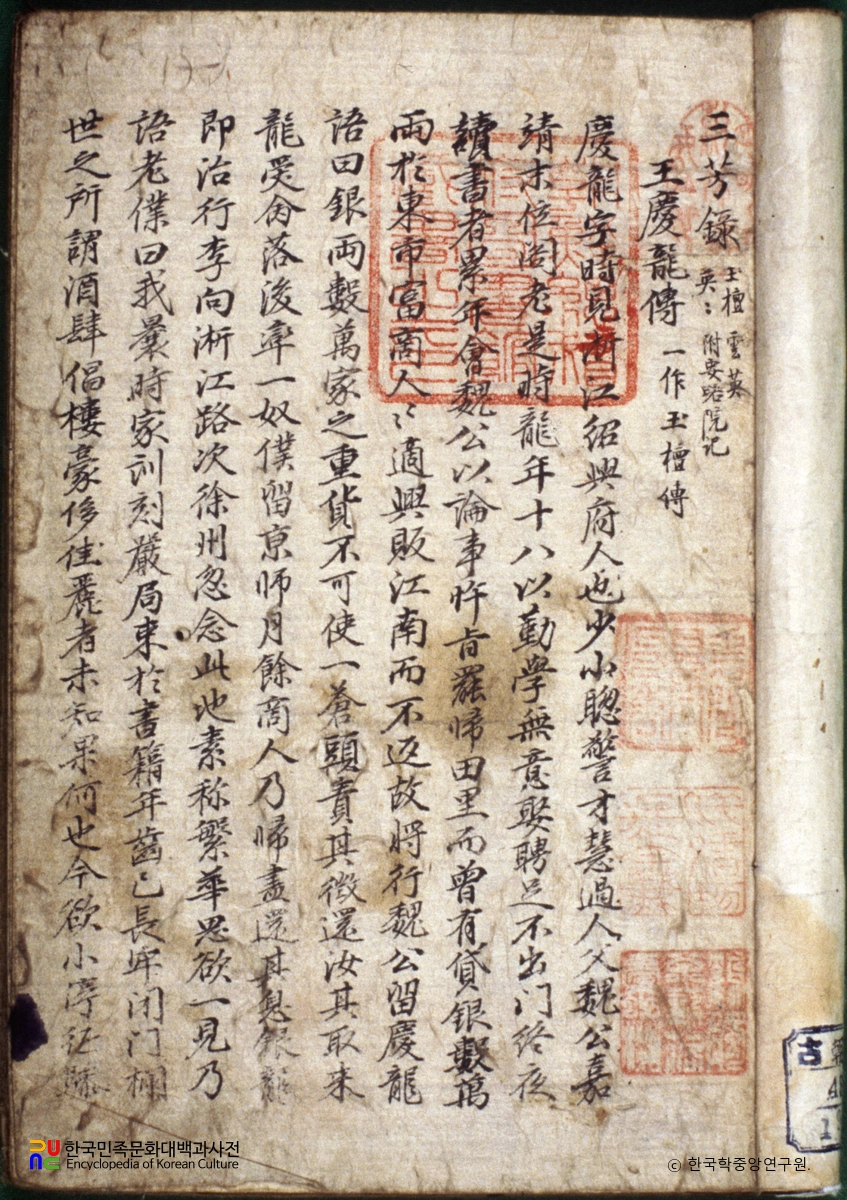 三芳錄 玉檀 雲英 英〻 附要路院記
王慶龍傳 一作玉檀傳
慶龍字時見浙江紹興府人也少小聰警才慧過人父魏公嘉
靖末位閣老是時龍年十八以勤學無意娶聘足不出门終夜
讀書者累年會魏公以論事忤旨罷歸田里而曾有貸銀數萬
兩於東市富商人〻適興販江南而不返故將行魏公留慶龍
語曰銀兩數萬家之重貨不可使一蒼頭責其徵還汝其取来
龍受命落後率一奴僕留京師月餘商人乃歸盡還其息銀龍
即治行李向浙江路次徐州忽念此地素称繁華思欲一見乃
語老僕曰我曩時家訓刻嚴局束於書籍年齒已長牢闭门
世之所謂酒肆倡樓豪侈佳麗者未知果何也今欲小停征
古
한국민족문화대백과사전
Encyclopedia of Korean Culture
© 한국학중앙연구원.